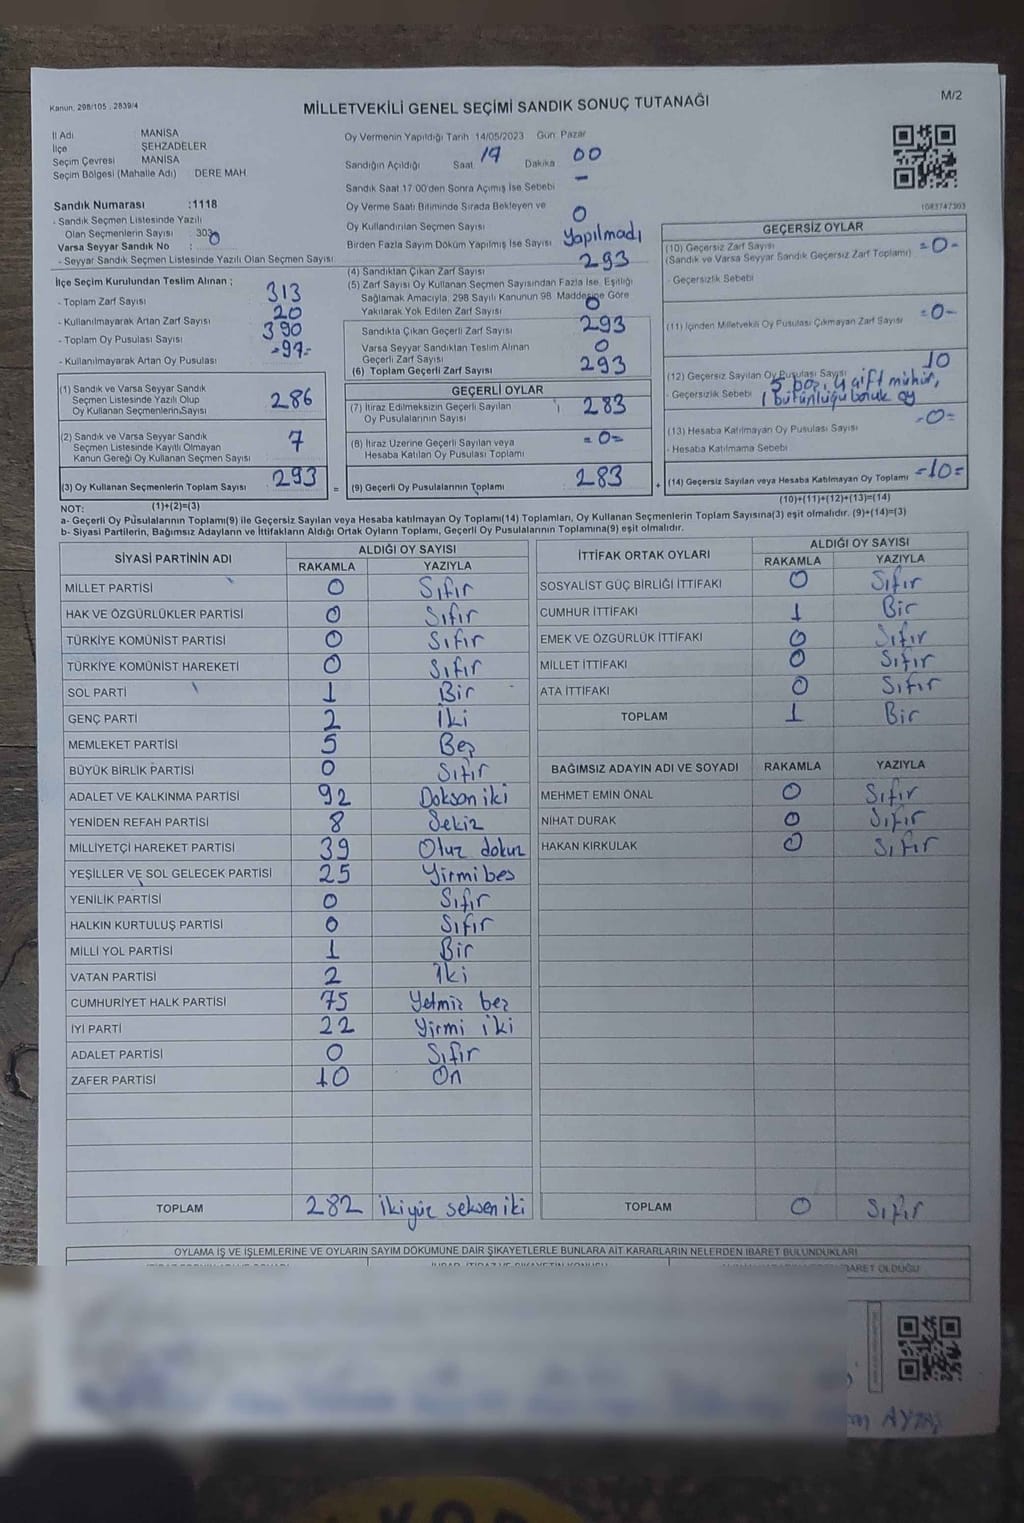 Kanun: 298/105 , 2839/4
MİLLETVEKİLİ GENEL SEÇİMİ SANDIK SONUÇ TUTANAĞI
M/2
İl Adı MANİSA
İlçe ŞEHZADELER
Seçim Çevresi MANİSA
Seçim Bölgesi (Mahalle Adı) DERE MAH.
Sandık Numarası :1118
- Sandık Seçmen Listesinde Yazılı
Olan Seçmenlerin Sayısı : 303
Varsa Seyyar Sandık No : 0
- Seyyar Sandık Seçmen Listesinde Yazılı Olan Seçmen Sayısı
Oy Vermenin Yapıldığı Tarih 14/05/2023 Gün: Pazar
Sandığın Açıldığı Saat 19 Dakika 00
Sandık Saat 17:00'den Sonra Açımış İse Sebebi -
Oy Verme Saati Bitiminde Sırada Bekleyen ve
Oy Kullandırılan Seçmen Sayısı 0
Birden Fazla Sayım Döküm Yapılmış İse Sayısı Yapılmadı
1083747303
İlçe Seçim Kurulundan Teslim Alınan ;
- Toplam Zarf Sayısı 313
- Kullanılmayarak Artan Zarf Sayısı 20
- Toplam Oy Pusulası Sayısı 390
- Kullanılmayarak Artan Oy Pusulası -97-
(1) Sandık ve Varsa Seyyar Sandık
Seçmen Listesinde Yazılı Olup
Oy Kullanan Seçmenlerin Sayısı 286
(2) Sandık ve Varsa Seyyar Sandık
Seçmen Listesinde Kayıtlı Olmayan
Kanun Gereği Oy Kullanan Seçmen Sayısı 7
(3) Oy Kullanan Seçmenlerin Toplam Sayısı 293 =
(1)+(2)=(3)
(4) Sandıktan Çıkan Zarf Sayısı 293
(5) Zarf Sayısı Oy Kullanan Seçmen Sayısından Fazla İse, Eşitliği
Sağlamak Amacıyla, 298 Sayılı Kanunun 98. Maddesine Göre
Yakılarak Yok Edilen Zarf Sayısı 0
Sandıkta Çıkan Geçerli Zarf Sayısı 293
Varsa Seyyar Sandıktan Teslim Alınan
Geçerli Zarf Sayısı 0
(6) Toplam Geçerli Zarf Sayısı 293
GEÇERLİ OYLAR
(7) İtiraz Edilmeksizin Geçerli Sayılan
Oy Pusulasının Sayısı 283
(8) İtiraz Üzerine Geçerli Sayılan veya
Hesaba Katılan Oy Pusulası Toplamı =0=
(9) Geçerli Oy Pusulalarının Toplamı 283 +
GEÇERSİZ OYLAR
(10) Geçersiz Zarf Sayısı =0-
(Sandık ve Varsa Seyyar Sandık Geçersiz Zarf Toplamı)
- Geçersizlik Sebebi
(11) İçinden Milletvekili Oy Pusulası Çıkmayan Zarf Sayısı =0-
(12) Geçersiz Sayılan Oy Pusulası Sayısı 10
- Geçersizlik Sebebi 5 boş, 4 çift mühür,
1 bütünlüğü bozuk oy
(13) Hesaba Katılmayan Oy Pusulası Sayısı -0-
- Hesaba Katılmama Sebebi
(14) Geçersiz Sayılan veya Hesaba Katılmayan Oy Toplamı =10=
(10)+(11)+(12)+(13)=(14)
NOT:
a- Geçerli Oy Pusulalarının Toplamı(9) ile Geçersiz Sayılan veya Hesaba katılmayan Oy Toplamı(14) Toplamları, Oy Kullanan Seçmenlerin Toplam Sayısına(3) eşit olmalıdır. (9)+(14)=(3)
b- Siyasi Partilerin, Bağımsız Adayların ve İttifakların Aldığı Ortak Oyların Toplamı, Geçerli Oy Pusulasının Toplamına(9) eşit olmalıdır.
SİYASİ PARTİNİN ADI ALDIĞI OY SAYISI
RAKAMLA YAZIYLA
MİLLET PARTİSİ 0 Sıfır
HAK VE ÖZGÜRLÜKLER PARTİSİ 0 Sıfır
TÜRKİYE KOMÜNİST PARTİSİ 0 Sıfır
TÜRKİYE KOMÜNİST HAREKETİ 0 Sıfır
SOL PARTİ 1 Bir
GENÇ PARTİ 2 İki
MEMLEKET PARTİSİ 5 Beş
BÜYÜK BİRLİK PARTİSİ 0 Sıfır
ADALET VE KALKINMA PARTİSİ 92 Doksan iki
YENİDEN REFAH PARTİSİ 8 Sekiz
MİLLİYETÇİ HAREKET PARTİSİ 39 Otuz dokuz
YEŞİLLER VE SOL GELECEK PARTİSİ 25 Yirmi beş
YENİLİK PARTİSİ 0 Sıfır
HALKIN KURTULUŞ PARTİSİ 0 Sıfır
MİLLİ YOL PARTİSİ 1 Bir
VATAN PARTİSİ 2 İki
CUMHURİYET HALK PARTİSİ 75 Yetmiş beş
İYİ PARTİ 22 Yirmi iki
ADALET PARTİSİ 0 Sıfır
ZAFER PARTİSİ 10 On
TOPLAM 282 İkiyüz seksen iki
İTTİFAK ORTAK OYLARI ALDIĞI OY SAYISI
RAKAMLA YAZIYLA
SOSYALİST GÜÇ BİRLİĞİ İTTİFAKI 0 Sıfır
CUMHUR İTTİFAKI 1 Bir
EMEK VE ÖZGÜRLÜK İTTİFAKI 0 Sıfır
MİLLET İTTİFAKI 0 Sıfır
ATA İTTİFAKI 0 Sıfır
TOPLAM 1 Bir
BAĞIMSIZ ADAYIN ADI VE SOYADI RAKAMLA YAZIYLA
MEHMET EMİN ÖNAL 0 Sıfır
NİHAT DURAK 0 Sıfır
HAKAN KIRKULAK 0 Sıfır
TOPLAM 0 Sıfır
OYLAMA İŞ VE İŞLEMLERİNE VE OYLARIN SAYIM DÖKÜMÜNE DAİR ŞİKAYETLERLE BUNLARA AİT KARARLARIN NELERDEN İBARET BULUNDUKLARI
İBARET OLDUĞU